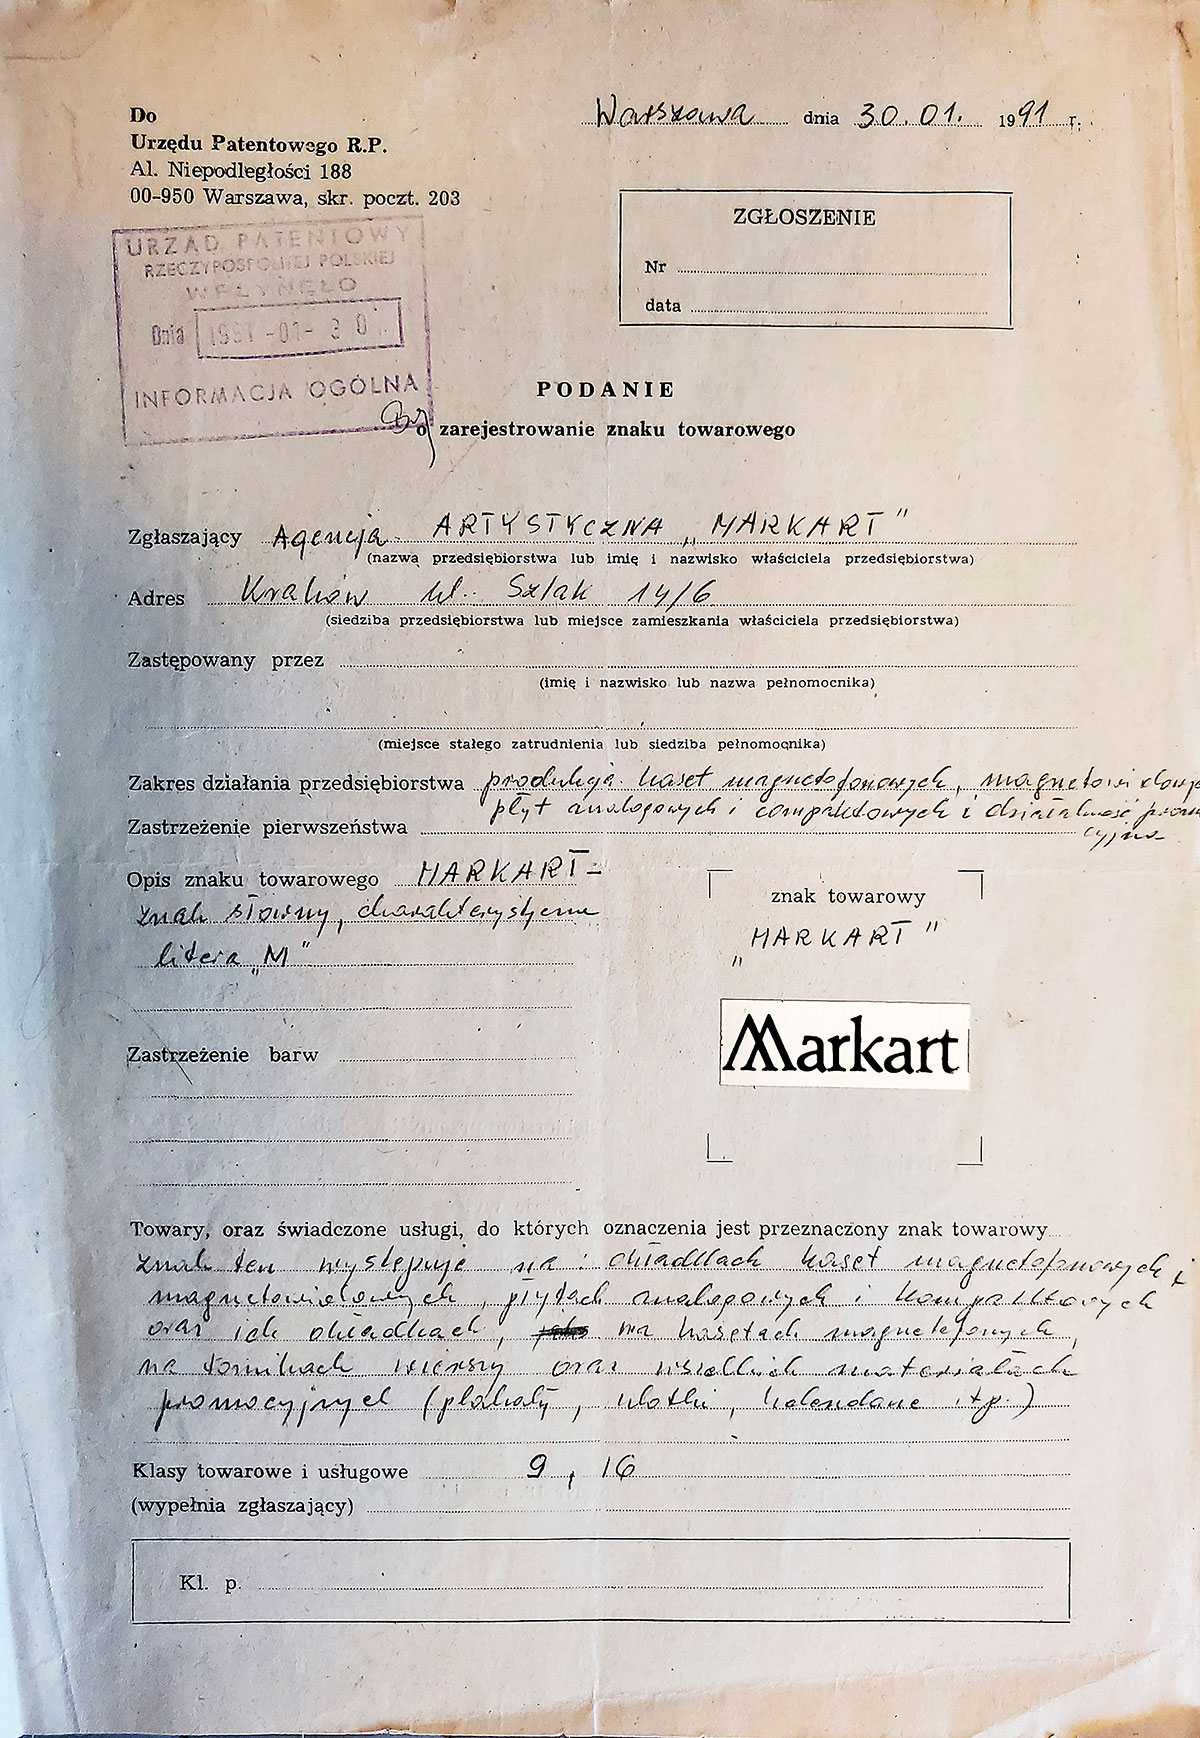 Do
Urzędu Patentowego R.P.
Al. Niepodległości 188
00-950 Warszawa, skr. poczt. 203
Warszawa dnia 30.01. 1991 r.
ZGŁOSZENIE
Nr
data
URZĄD PATENTOWY
RZECZYPOSPOLITEJ POLSKIEJ
WPŁYNĘŁO
Dnia 1991-01-30
INFORMACJA OGÓLNA
PODANIE
o zarejestrowanie znaku towarowego
Zgłaszający Agencja ARTYSTYCZNA „MARKART"
(nazwa przedsiębiorstwa lub imię i nazwisko właściciela przedsiębiorstwa)
Adres Kraków ul. Szlak 14/6
(siedziba przedsiębiorstwa lub miejsce zamieszkania właściciela przedsiębiorstwa)
Zastępowany przez
(imię i nazwisko lub nazwa pełnomocnika)
(miejsce stałego zatrudnienia lub siedziba pełnomocnika)
Zakres działania przedsiębiorstwa produkcja kaset magnetofonowych,
płyt analogowych i compaktowych i działalność promo
Zastrzeżenie pierwszeństwa
cyjna
Opis znaku towarowego MARKART -
znak słowny, charakterystyczna
litera „M"
znak towarowy
„MARKART"
Markart
Zastrzeżenie barw
Towary, oraz świadczone usługi, do których oznaczenia jest przeznaczony znak towarowy
znak ten występuje na: okładkach kaset magnetofonowych i
magnetowidowych, płytach analogowych i kompaktowych
oraz ich okładkach, na kasetach magnetofonowych,
na tomikach wierszy oraz wszelkich materiałach
promocyjnych (plakaty, ulotki, kalendarze itp.)
Klasy towarowe i usługowe 9, 16
(wypełnia zgłaszający)
Kl. p.